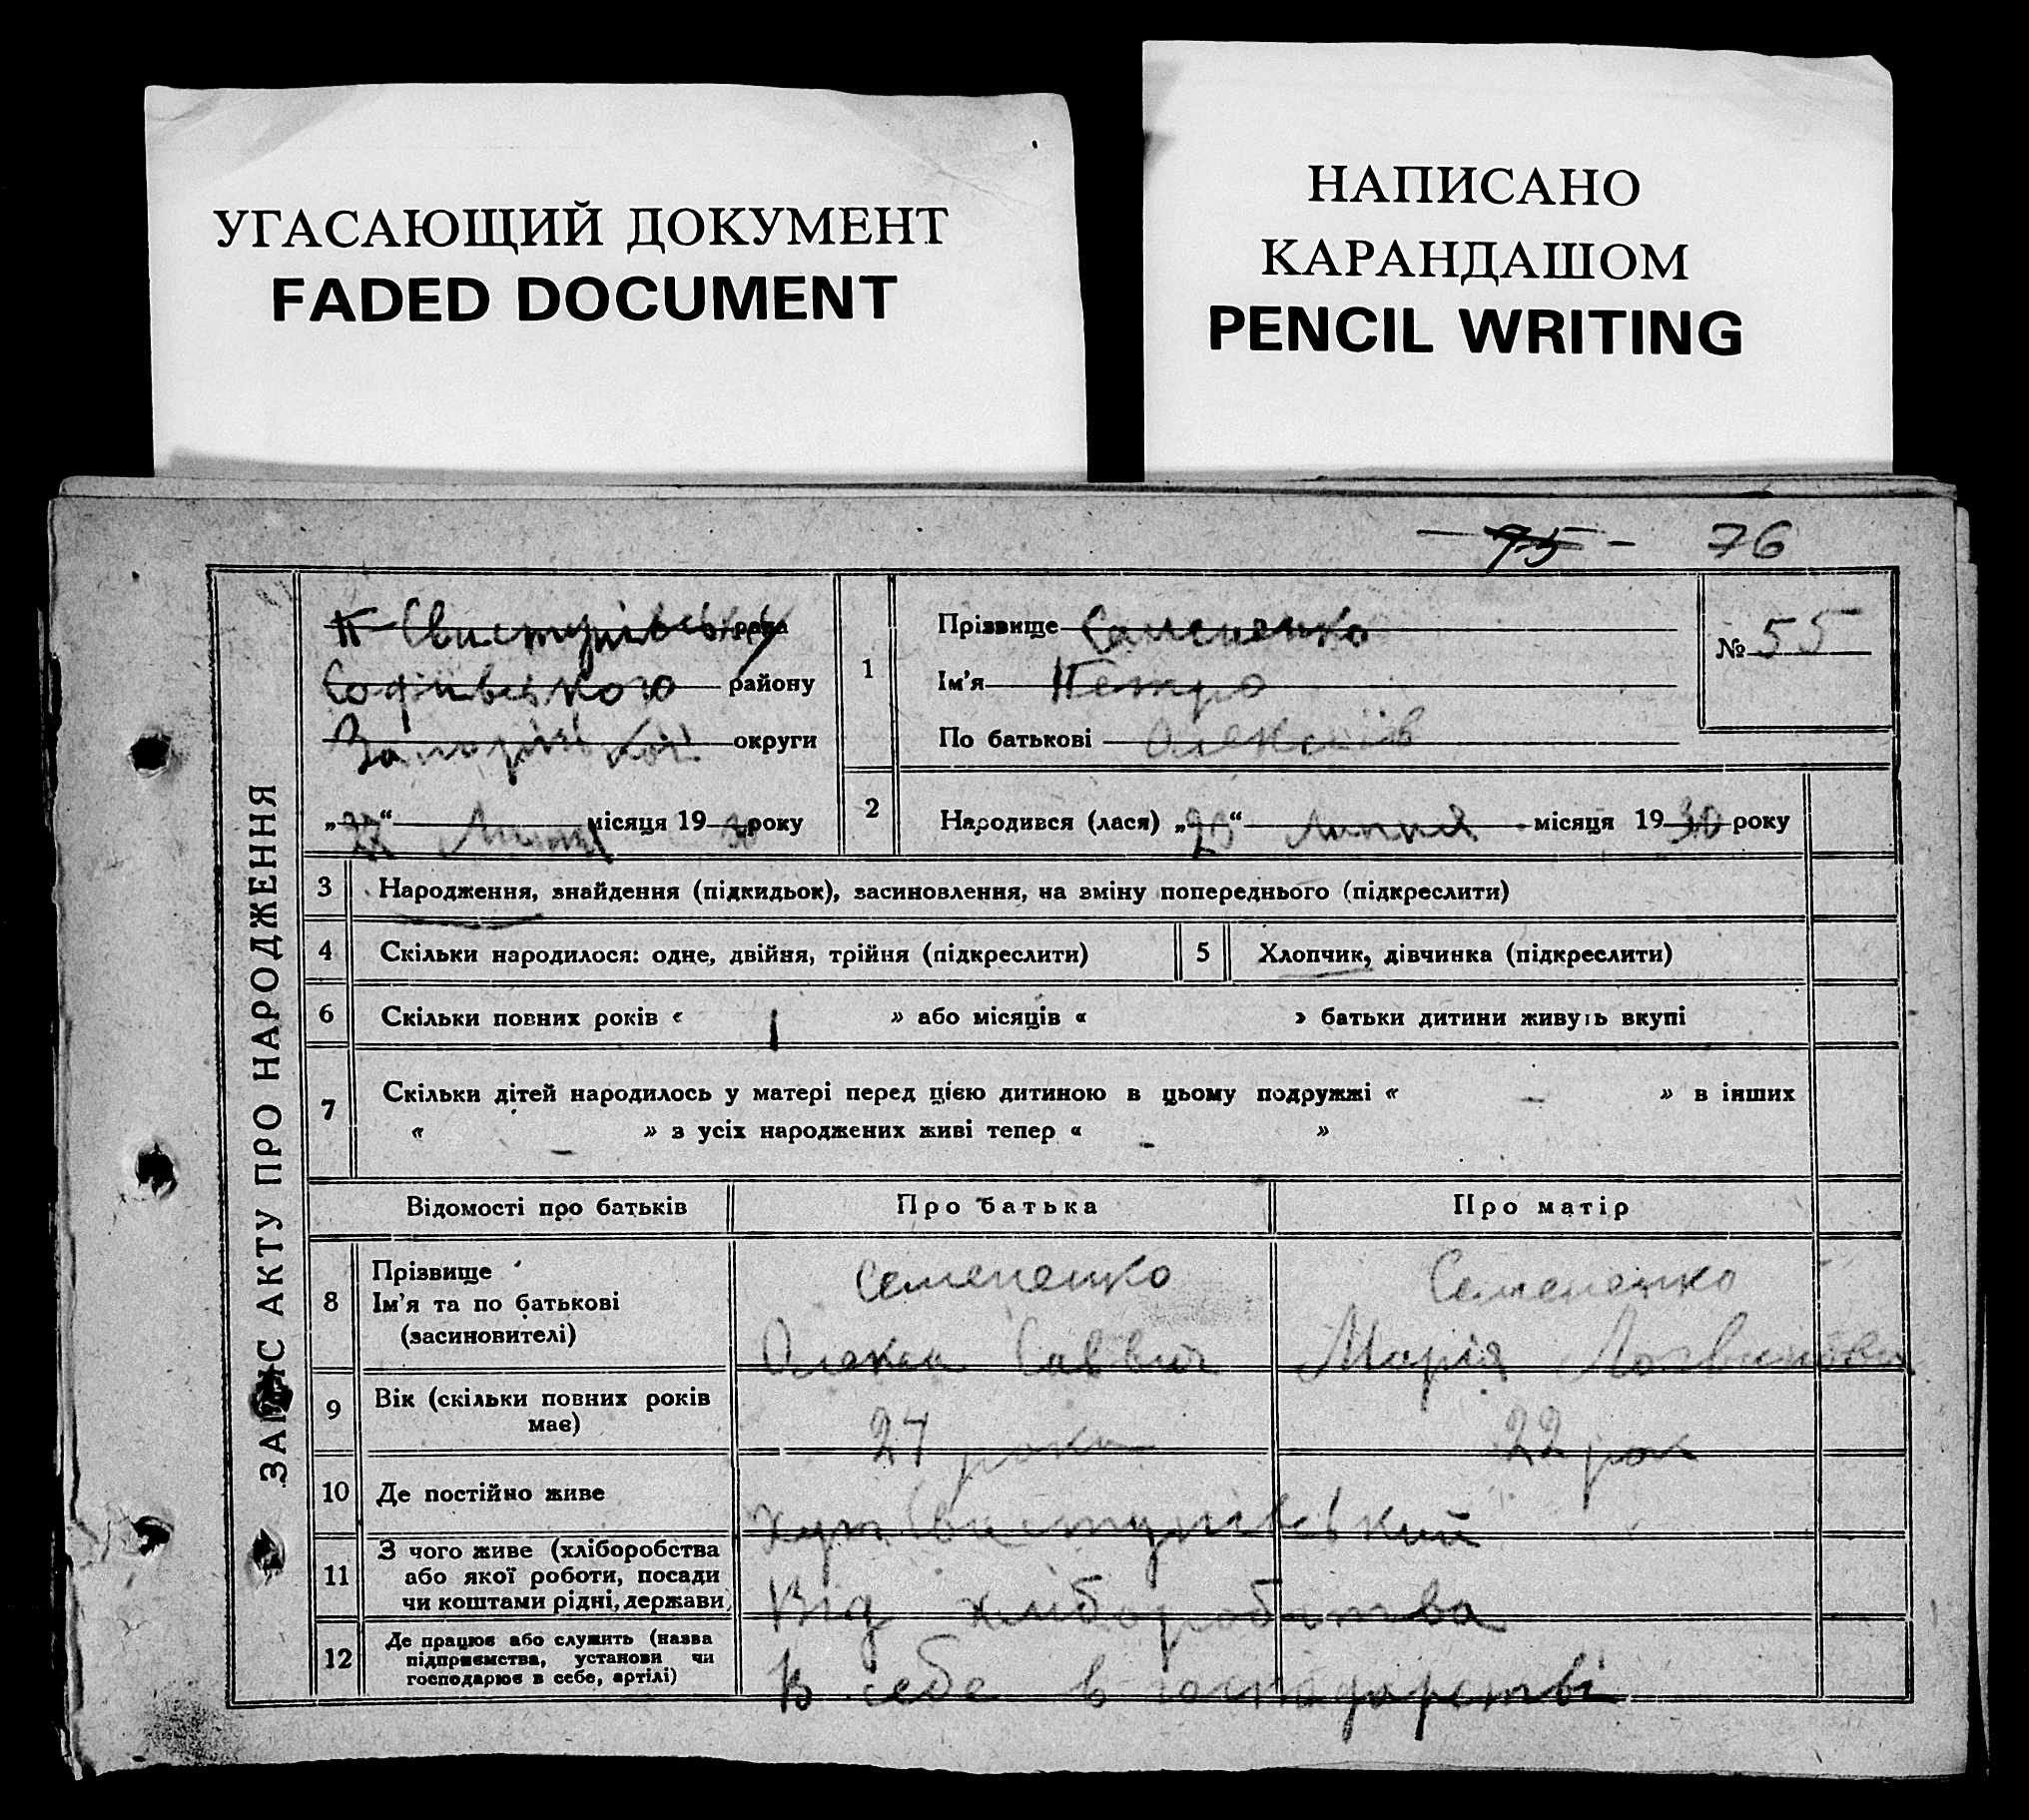 УГАСАЮЩИЙ ДОКУМЕНТ
FADED DOCUMENT
НАПИСАНО
КАРАНДАШОМ
PENCIL WRITING
75 - 76
ЗАПИС АКТУ ПРО НАРОДЖЕННЯ
рада
Софіївського району
Запорізької округи
„27“ Липня місяця 1930 року
1 Прізвище Семененко
Ім'я Петро
По батькові Олексіїв
№ 55
2 Народився (лася) „25“ Липня місяця 1930 року
3 Народження, знайдення (підкидьок), засиновлення, на зміну попереднього (підкреслити)
4 Скільки народилося: одне, двійня, трійня (підкреслити)
5 Хлопчик, дівчинка (підкреслити)
6 Скільки повних років « 1 » або місяців « » батьки дитини живуть вкупі
7 Скільки дітей народилось у матері перед цією дитиною в цьому подружжі « - » в інших
« - » з усіх народжених живі тепер « - »
Відомості про батьків Про батька Про матір
8 Прізвище Семененко Семененко
Ім'я та по батькові
(засиновителі) Олекса Саввич Марія
9 Вік (скільки повних років
має) 27 роки 22 рок
10 Де постійно живе
хут Свистунівський
11 З чого живе (хліборобства
або якої роботи, посади
чи коштами рідні, держави
Від хліборобства
12 Де працює або служить (назва
підприємства, установи чи
господарює в себе, артілі)
В себе в господарстві